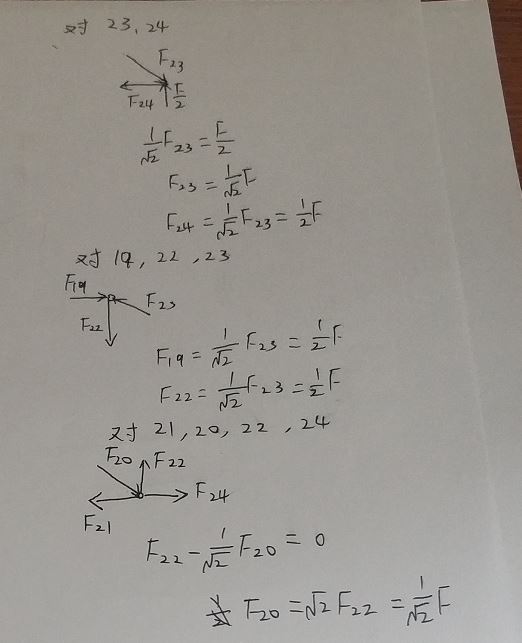 对 23, 24
F₂₃
F₂₄ F/2
1/√2 F₂₃ = F/2
F₂₃ = 1/√2 F
F₂₄ = 1/√2 F₂₃ = 1/2 F
对 19, 22, 23
F₁₉ F₂₃
F₂₂
F₁₉ = 1/√2 F₂₃ = 1/2 F
F₂₂ = 1/√2 F₂₃ = 1/2 F
对 21, 20, 22, 24
F₂₀ F₂₂
F₂₄
F₂₁
F₂₂ - 1/√2 F₂₀ = 0
F₂₀ = √2 F₂₂ = 1/√2 F